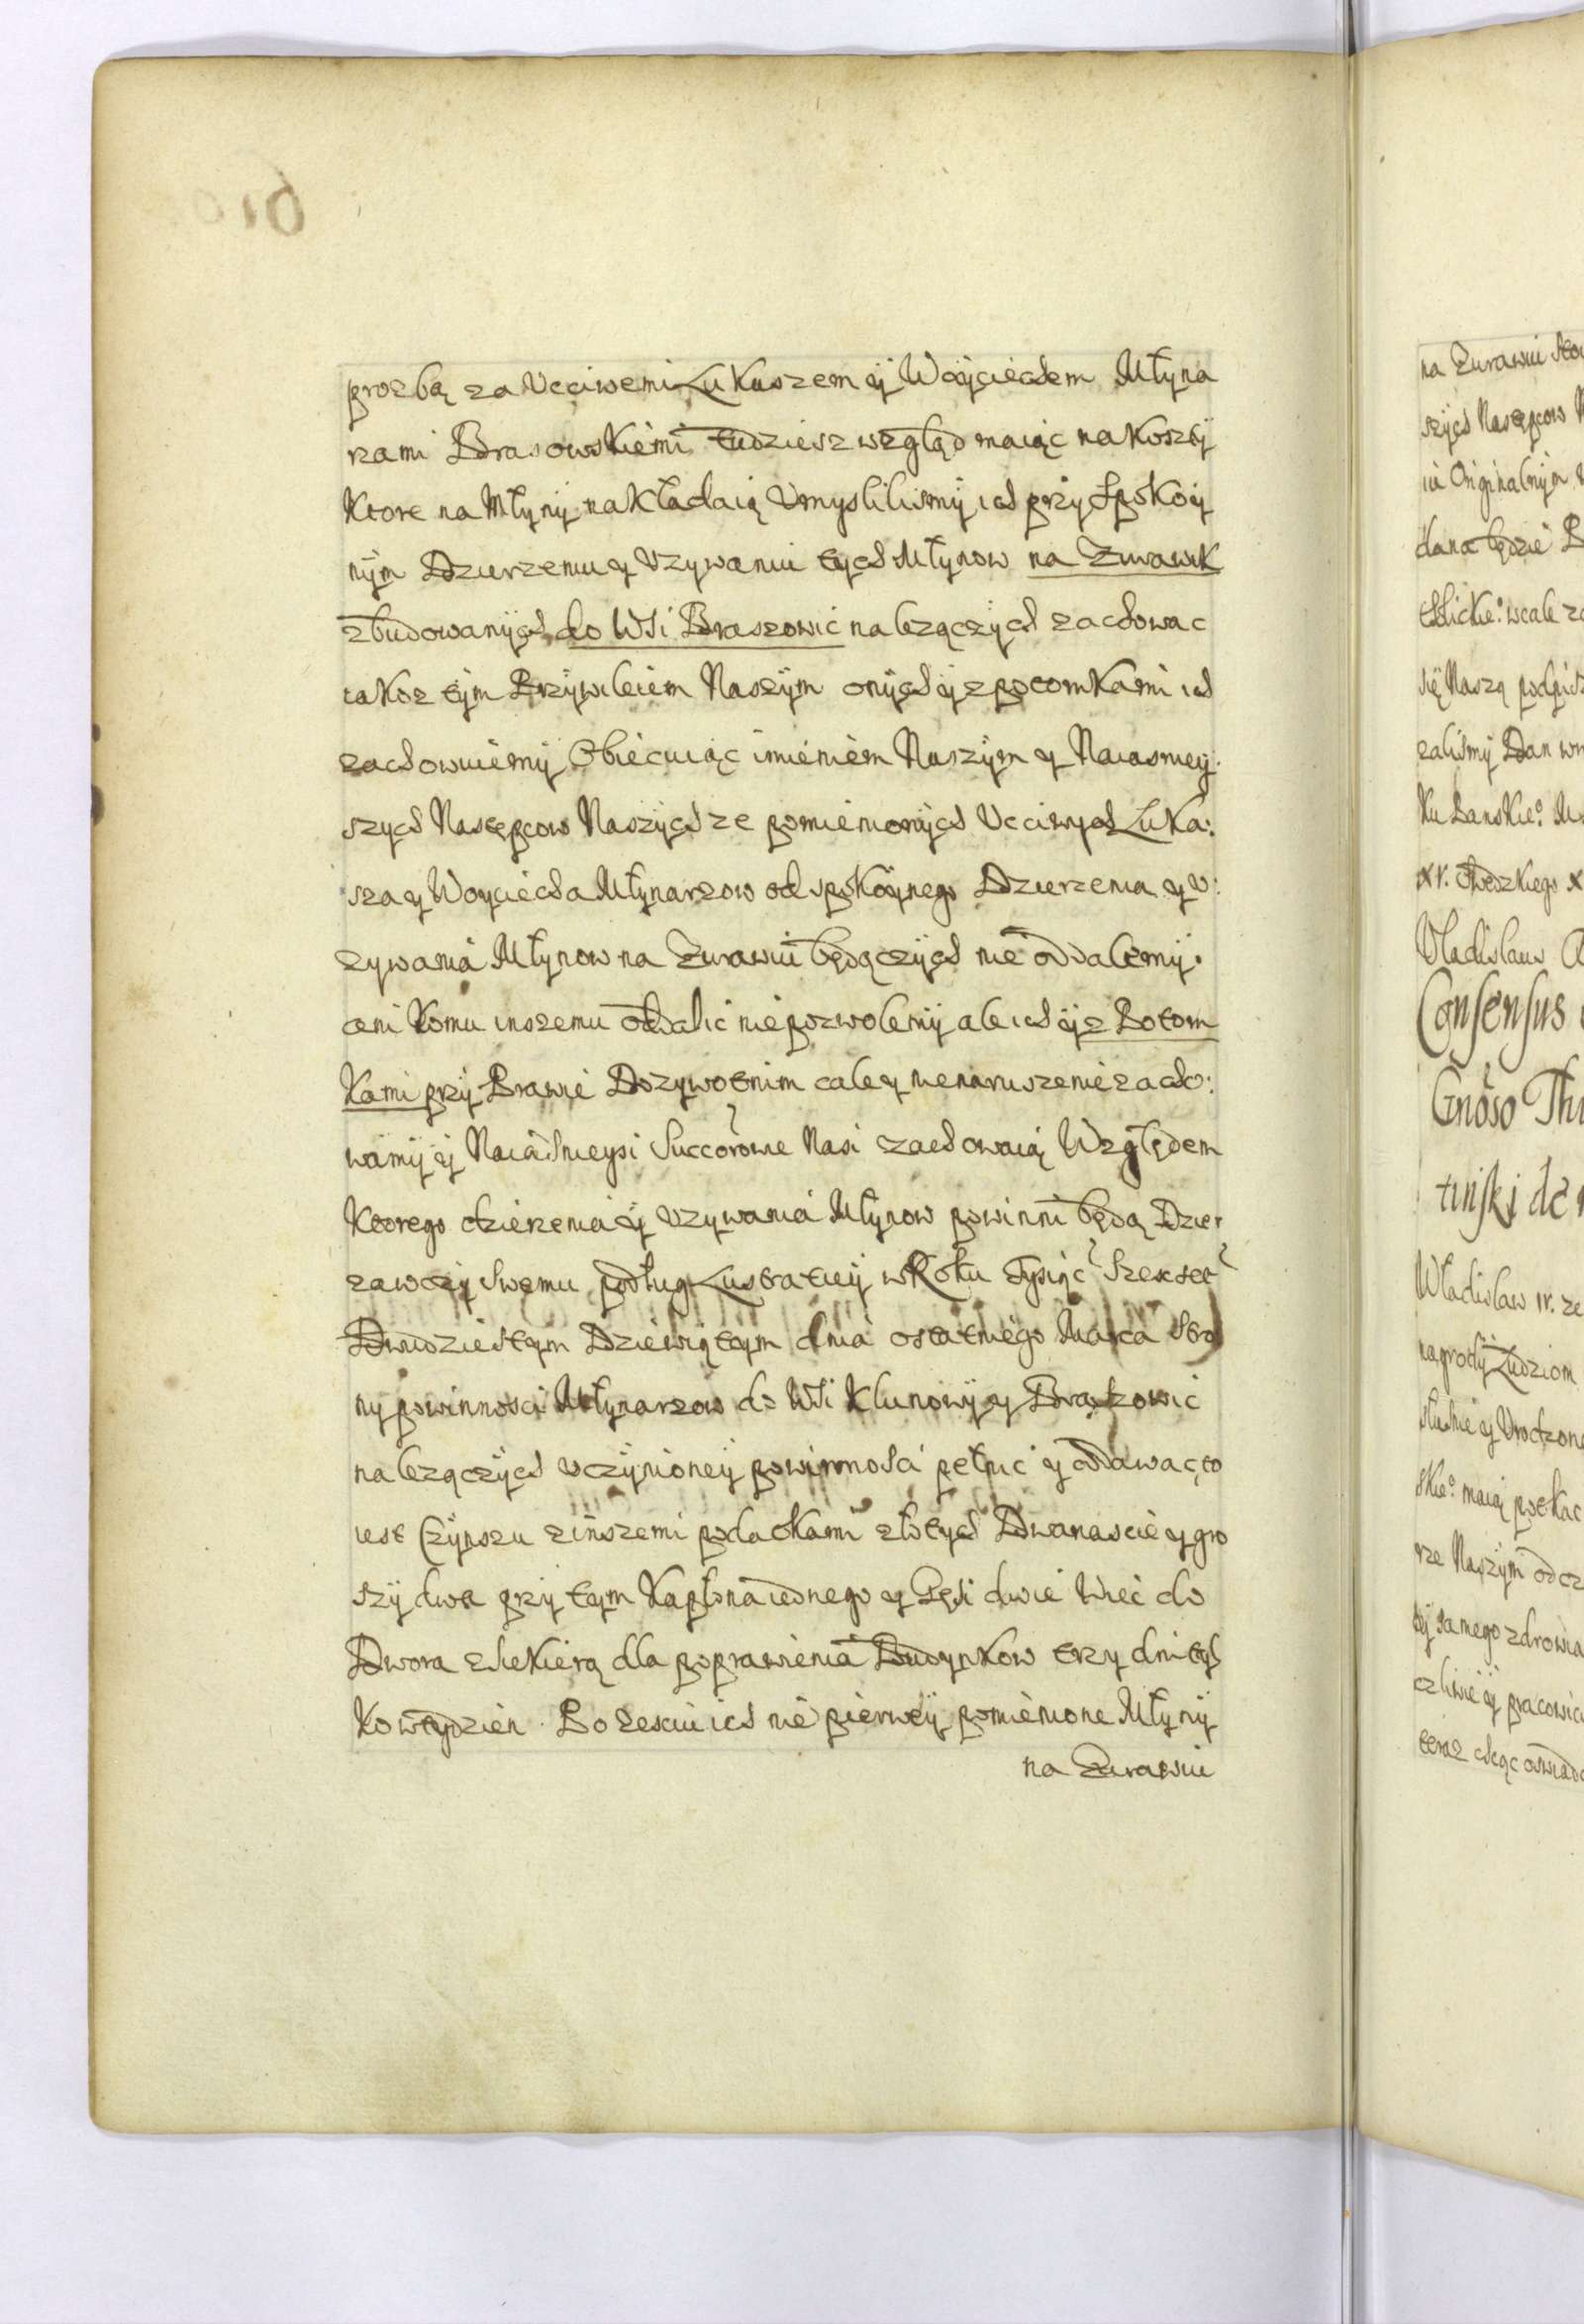 prozbą za Vcciwemi Lukaszem ÿ Woÿciechem Młÿna
rzami Brasowskiemi tudziesz wzgląd maiąc na kosztÿ
ktore na Młÿnÿ nakładaią Vmyslilismÿ ich przÿ Spokoÿ
nÿm Dzierzeniu ÿ Vzywaniu tych Młynow na Zurawik
zbudowanÿch do Wsi Braszowic nalezączÿch zachowac
iakoz tÿm Przÿwileiem Naszÿm onÿch ÿ z potomkami ich
zachowuiemÿ Obiecuiąc imieniem Naszÿm ÿ Naiasnieÿ:
szych Nastepcow Naszÿch ze pomienionÿch Vcciwych Luka:
sza ÿ Woyciecha Młynarzow od spokoÿnego Dzierzenia ÿ v:
zywania Młynow na Zurawiu będączÿch nie oddalemÿ
ani komu inszemu oddalic niepozwolemÿ ale ich ÿ z Potom
kami przÿ Prawie Dozywotnim cale ÿ nienaruszenie zacho:
wamÿ ÿ Naiasnieysi Succorowie Nasi zachowaią Względem
ktorego dzierzenia ÿ vzywania Młÿnow powinni będą Dzier
zawczÿ Swemu podług Lustratieÿ w Roku Tysiąc Szescset
Dwudziestÿm Dziewiątym dnia ostatniego Marca Stro
ny powinnosci Młynarzow do Wsi Klunowÿ ÿ Braszowic
nalezączÿch vczÿnioneÿ powinnosci pełnic ÿ oddawac to
iest Czÿnszu z inszemi podatkami złotych Dwanascie ÿ gro
szÿ dwa przÿ tym Kapłona iednego ÿ Gęsi dwie Wiec do
Dwora z siekierą dla poprawienia Budynkow trzy dni tyl
ko w tydzien Po Zesciu ich nie pierweÿ pomienione Młynÿ
na Zurawiu
na Zurawiu
szÿch Nastepcow
iu Originalnÿm
dana będzie
cale
się Naszą podpis
zalismÿ Dan w
Vladislaus
Consensus
Gnoso
Władisław IV.
nagrodÿ Ludziom
maią
rze Naszym
samego zdrowia
teraz chcąc